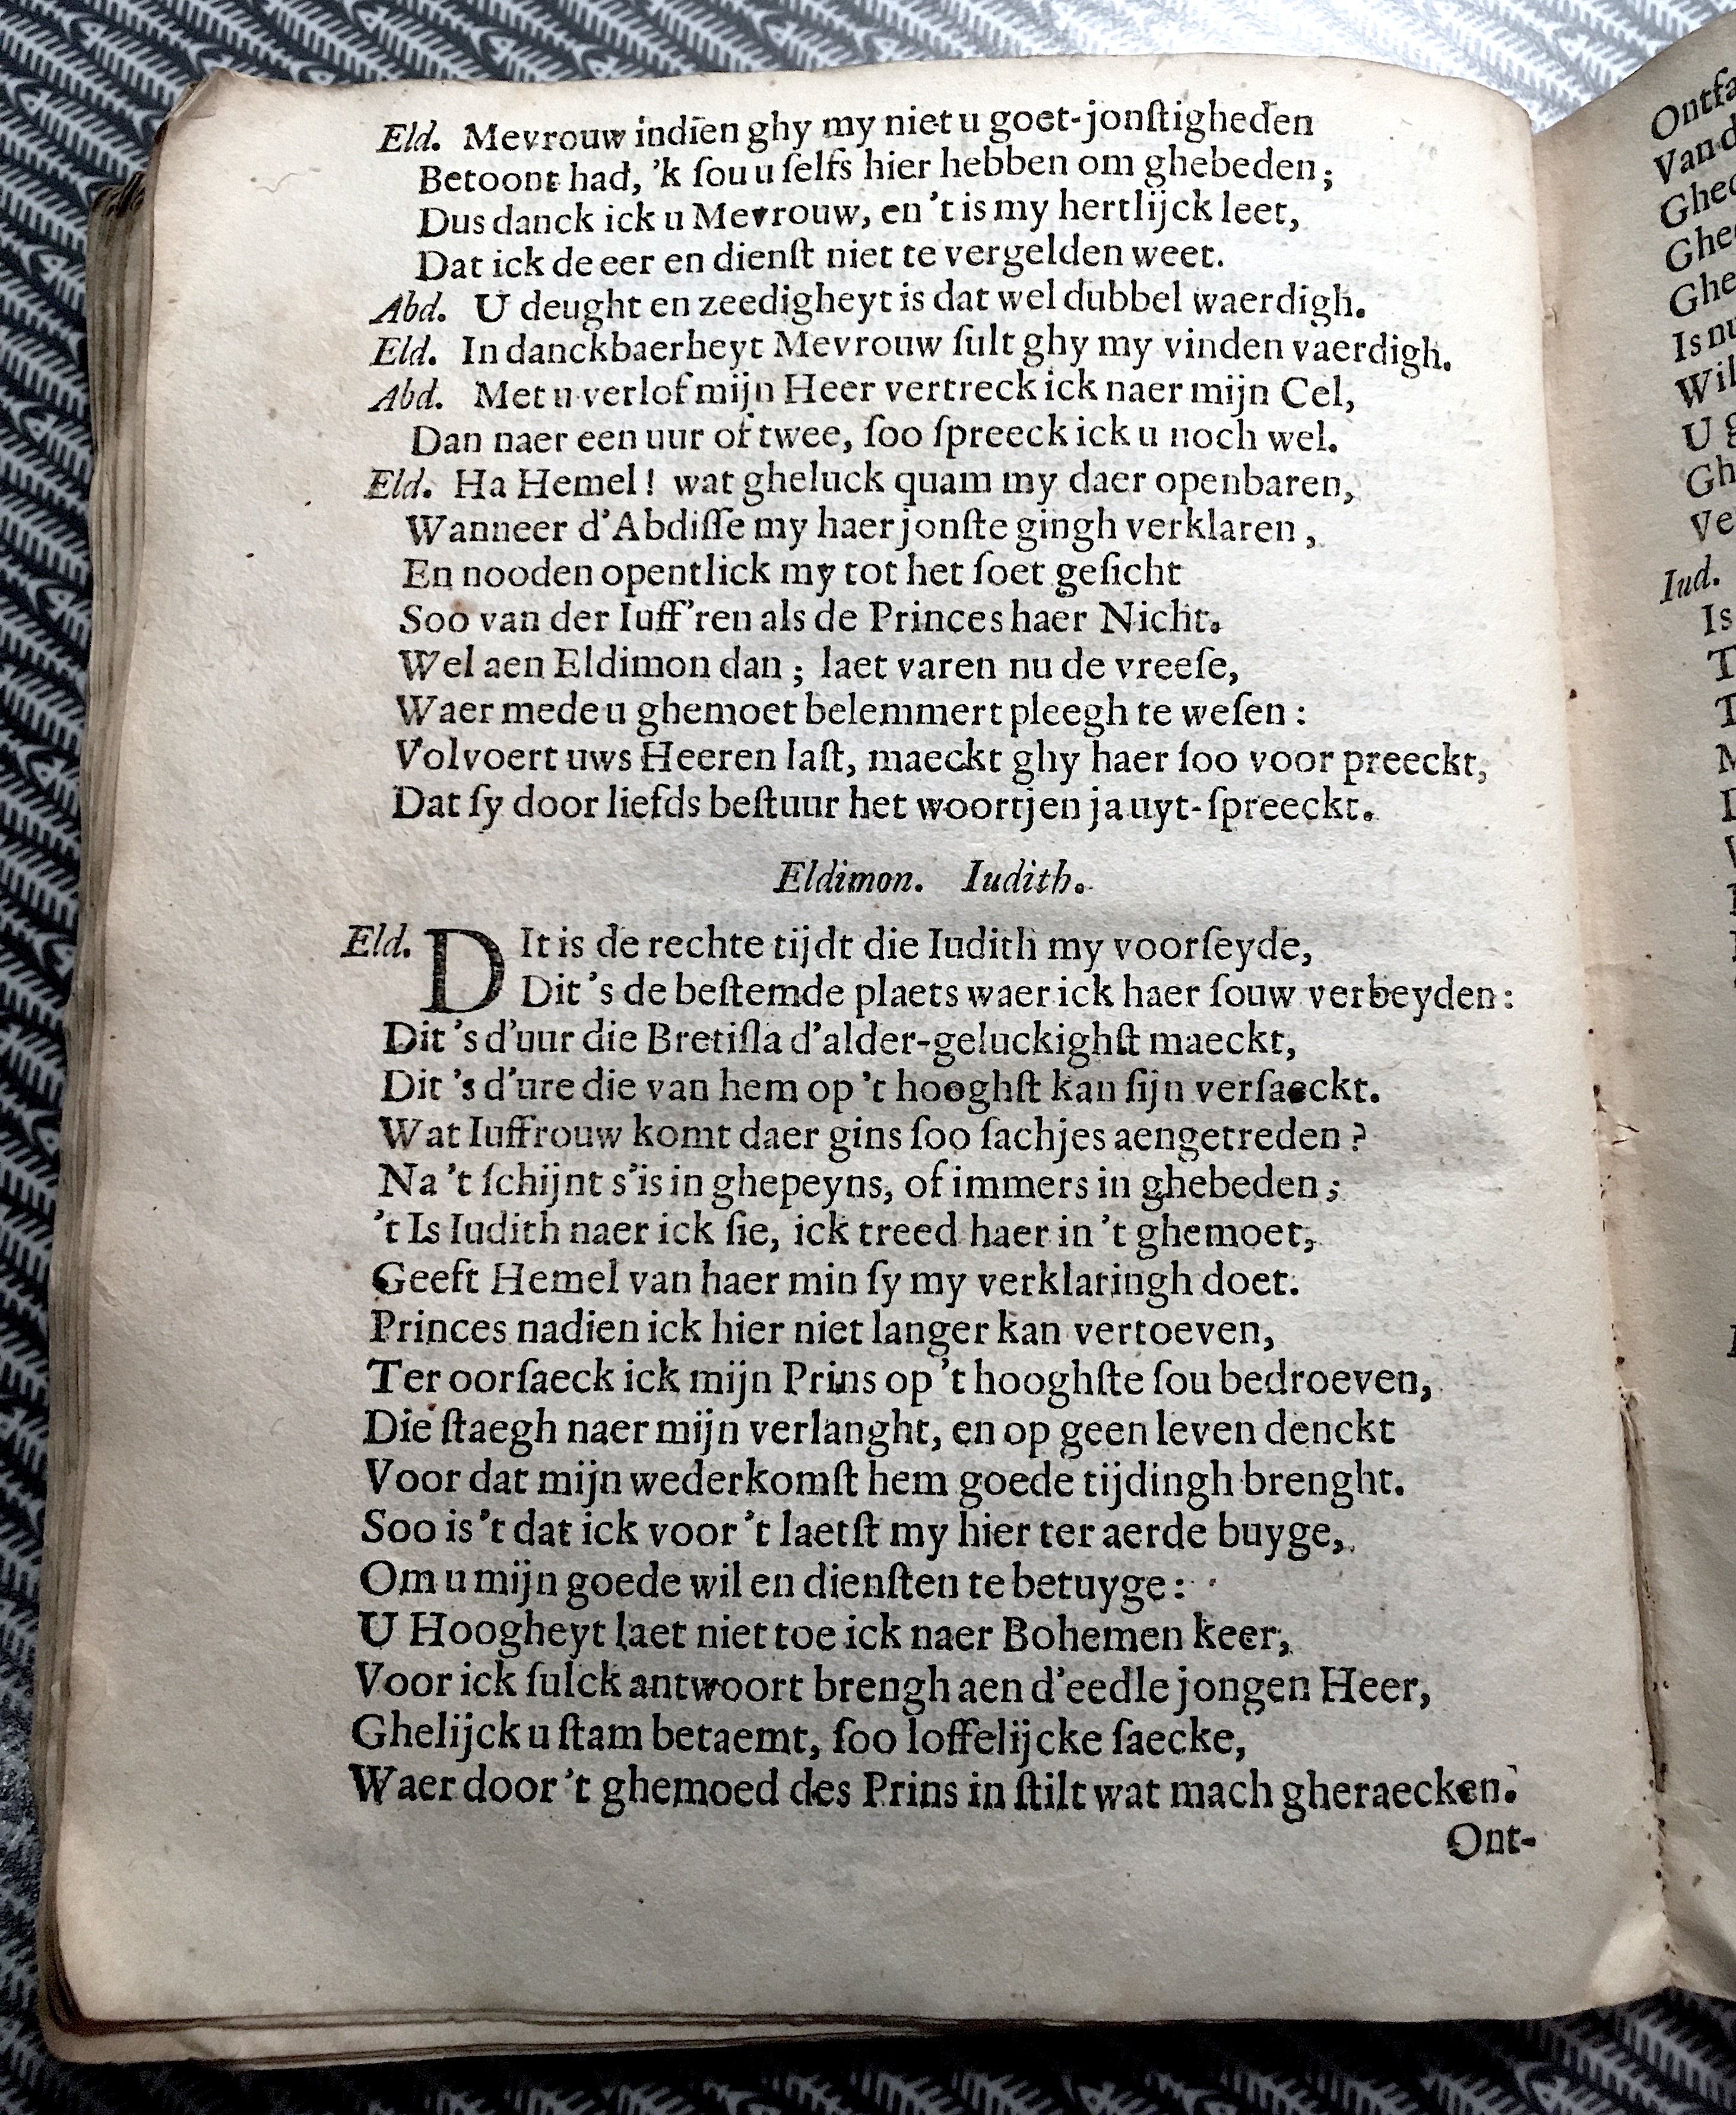 Eld. Mevrouw indien ghy my niet u goet-jonſtigheden
Betoont had, 'k ſou u ſelfs hier hebben om ghebeden;
Dus danck ick u Mevrouw, en 't is my hertlijck leet,
Dat ick de eer en dienſt niet te vergelden weet.
Abd. U deught en zeedigheyt is dat wel dubbel waerdigh.
Eld. In danckbaerheyt Mevrouw ſult ghy my vinden vaerdigh.
Abd. Met u verlof mijn Heer vertreck ick naer mijn Cel,
Dan naer een uur of twee, ſoo ſpreeck ick u noch wel.
Eld. Ha Hemel! wat gheluck quam my daer openbaren,
Wanneer d'Abdiſſe my haer jonſte gingh verklaren,
En nooden opentlick my tot het ſoet geſicht
Soo van der Iuff'ren als de Princes haer Nicht.
Wel aen Eldimon dan; laet varen nu de vreeſe,
Waer mede u ghemoet belemmert pleegh te weſen:
Volvoert uws Heeren laſt, maeckt ghy haer ſoo voor preeckt,
Dat ſy door liefds beſtuur het woortjen ja uyt-ſpreeckt.
Eldimon. Iudith.
Eld. DIt is de rechte tijdt die Iudith my voorſeyde,
Dit 's de beſtemde plaets waer ick haer ſouw verbeyden:
Dit 's d'uur die Bretiſla d'alder-geluckighſt maeckt,
Dit 's d'ure die van hem op 't hooghſt kan ſijn verſaeckt.
Wat Iuffrouw komt daer gins ſoo ſachjes aengetreden?
Na 't ſchijnt s'is in ghepeyns, of immers in ghebeden;
't Is Iudith naer ick ſie, ick treed haer in 't ghemoet,
Geeft Hemel van haer min ſy my verklaringh doet.
Princes nadien ick hier niet langer kan vertoeven,
Ter oorſaeck ick mijn Prins op 't hooghſte ſou bedroeven,
Die ſtaegh naer mijn verlanght, en op geen leven denckt
Voor dat mijn wederkomſt hem goede tijdingh brenght.
Soo is 't dat ick voor 't laetſt my hier ter aerde buyge,
Om u mijn goede wil en dienſten te betuyge:
U Hoogheyt laet niet toe ick naer Bohemen keer,
Voor ick ſulck antwoort brengh aen d'eedle jongen Heer,
Ghelijck u ſtam betaemt, ſoo loffelijcke ſaecke,
Waer door 't ghemoed des Prins in ſtilt wat mach gheraecken.
Ont-
Ontfa
Van d
Ghe
Ghe
Is nu
Wil
U g
Gh
Ve
Iud.
Is